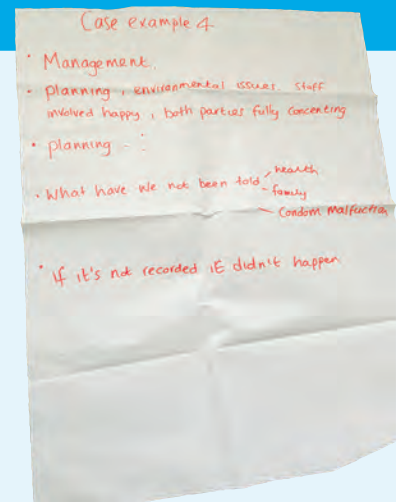 Case example 4
• Management.
• planning, environmental issues. Staff
involved happy, both parties fully concenting
• planning - :
• What have we not been told health
- family
- Condom malfuction
• If it's not recorded it didn't happen